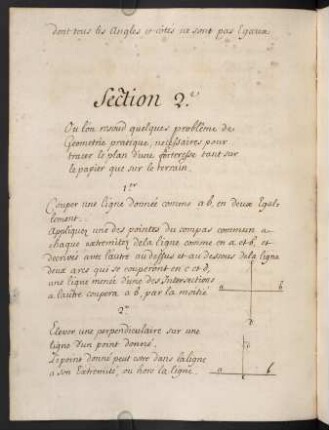 dont tous les Angles et côtés ne sont pas Egaux
Section 2.e
Ou l'on resoud quelques problême de
Geometrie pratique, necessaires pour
tracer le plan d'une forteresse tant sur
le papier que sur le terrain.
1.er
Couper une ligne donnée comme a b, en deux Egal-
lement.
Appliquez une des pointes du compas commun a
chaque extremitez de la ligne comme en a et b, et
decrivés avec l'autre au dessus et au dessous de la ligne
deux arcs qui se couperont en c et d,
une ligne menée d'une des Intersections
a l'autre coupera a b, par la moitié
a b
2.e
d
Elever une perpendiculaire sur une
ligne d'un point donné.
Le point donné peut estre dans la ligne
a son Extremité, ou hors la ligne.
a b